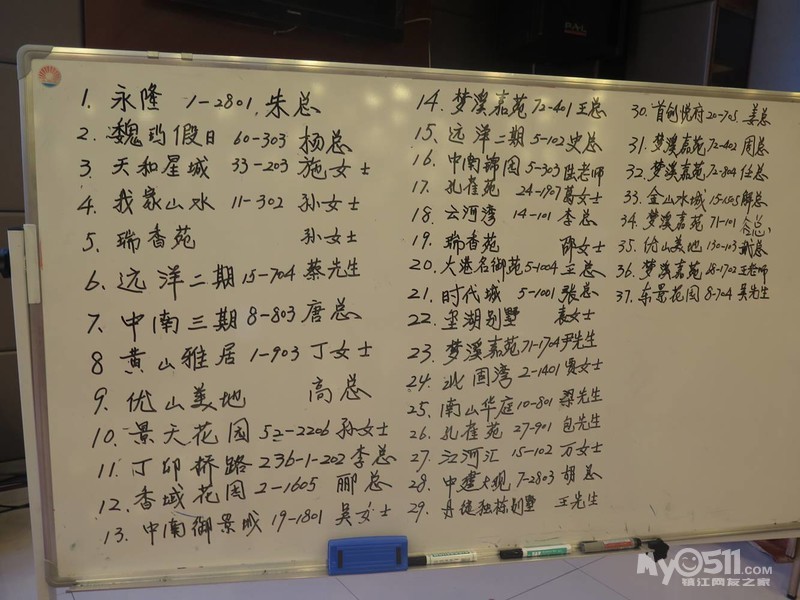 1. 永隆 1-2801, 朱总
2. 魏玛假日 60-303 杨总
3 天和星城 33-203 施女士
4. 我家山水 11-302 孙女士
5. 瑞香苑 孙女士
6. 远洋二期 15-704 蔡先生
7. 中南三期 8-803 唐总
8 黄山雅居 1-903 丁女士
9. 优山美地 高总
10. 景天花园 52-2206 孙女士
11. 丁卯桥路 236-1-202 李总
12. 香域花园 2-1605 郦总
13. 中南御景城 19-1801 吴女士
14. 梦溪嘉苑 72-401 王总
15. 远洋二期 5-102 史总
16. 中南锦园 5-303 陆老师
17. 孔雀苑 24-1907 葛女士
18. 云河湾 14-101 李总
19. 瑞香苑 邵女士
20. 大港名御苑 5-1004 王总
21. 时代城 5-1001 张总
22. 圣湖别墅 袁女士
23. 梦溪嘉苑 71-1704 尹先生
24. 北固湾 2-1401 贾女士
25. 南山华庭 10-801 梁先生
26. 孔雀苑 27-901 包先生
27. 江河汇 15-102 万女士
28. 中建大观 7-2803 胡总
29. 丹徒独栋别墅 王先生
30. 首创悦府 20-705 姜总
31. 梦溪嘉苑 72-402 周总
32. 梦溪嘉苑 72-804 任总
33. 金山水城 15-1505 解总
34. 梦溪嘉苑 71-101 总
35. 优山美地 130-103 总
36. 梦溪嘉苑 68-1702 王老师
37. 东景花园 8-704 吴先生
PAL
My0511.com
镇江网友之家